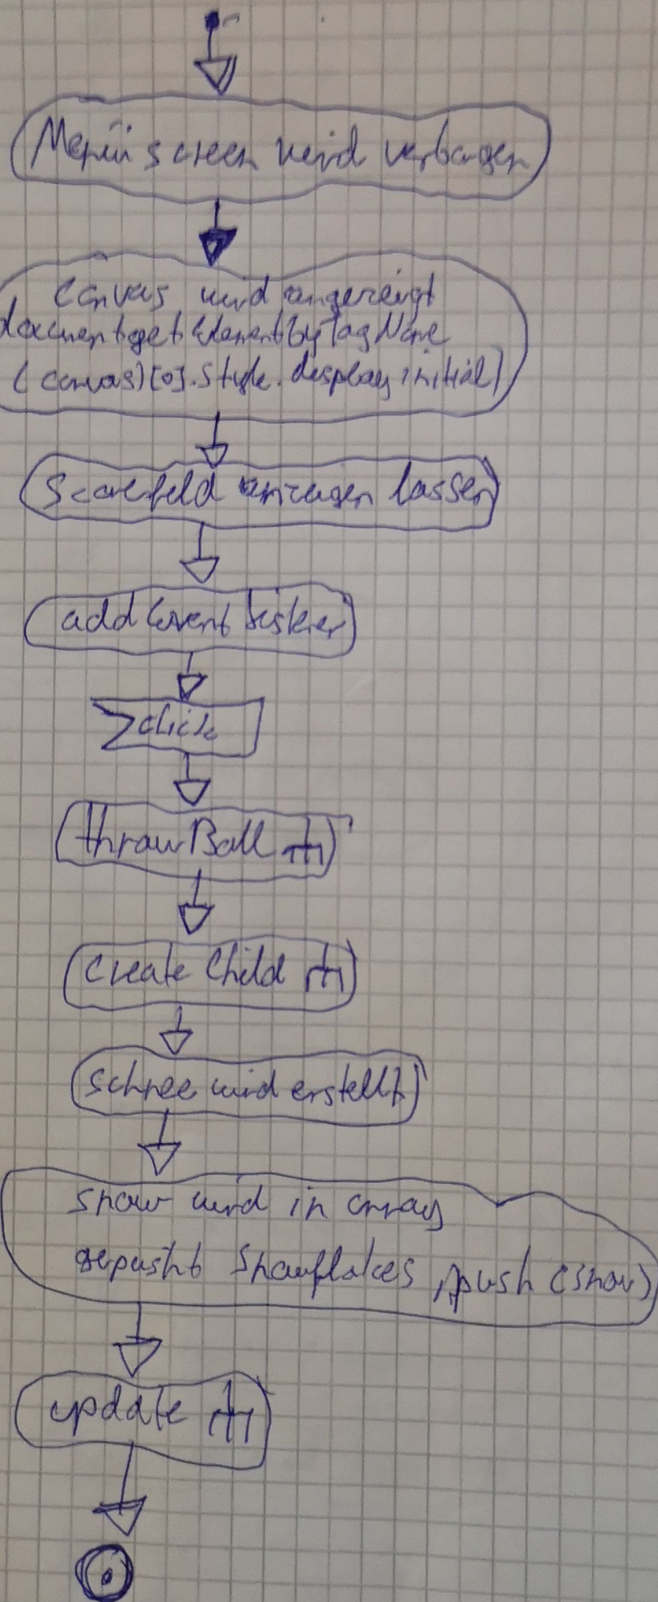 Menü screen wird verborgen
Canvas wird angezeigt
document.getElementbyTagName
(canvas)[0].style.display initial)
Scorefeld anzeigen lassen
add Event listener
click
throwBall
create Child
schnee wird erstellt
snow wird in array
gepusht Snowflakes .push (snow)
update